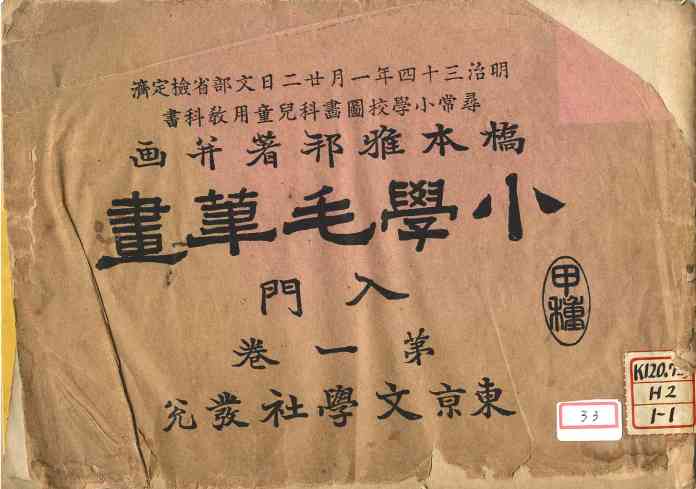 明治三十四年一月廿二日文部省檢定濟
尋常小學校圖畫科兒童用敎科書
橋本雅邦著并画
小學毛筆畫
入門
甲種
第一卷
東京文學社發兌
33
K120.7
H2
1-1